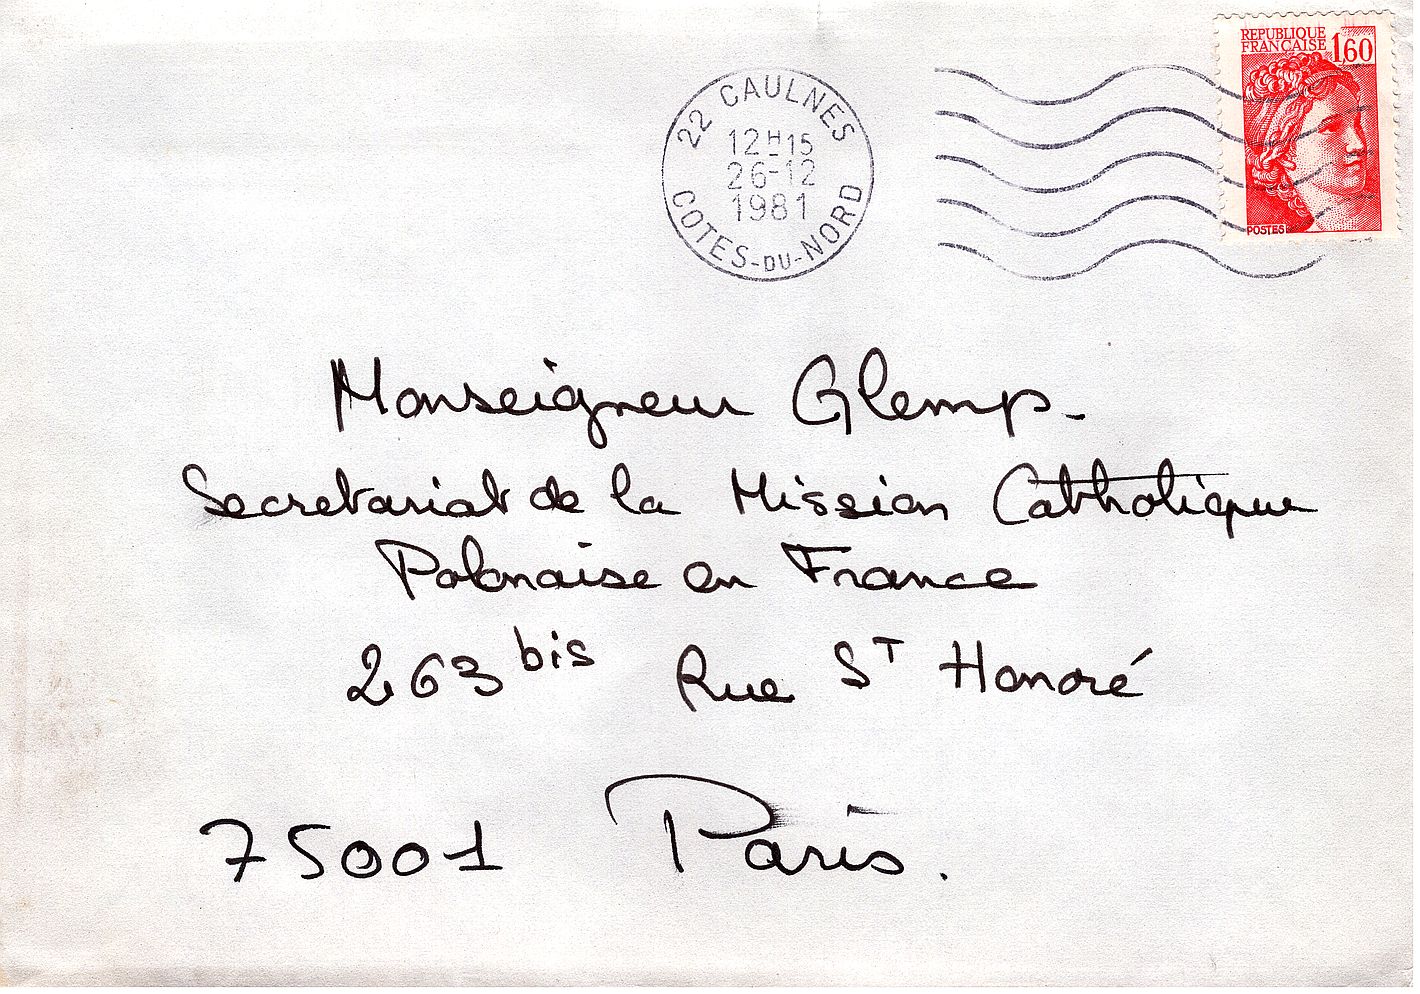 REPUBLIQUE
FRANÇAISE 1,60
POSTES
22 CAULNES
12H15
26-12
1981
COTES-DU-NORD
Monseigneur Glemp-
Secretariat de la Mission Catholique
Polonaise en France
263 bis Rue ST Honoré
75001 Paris.